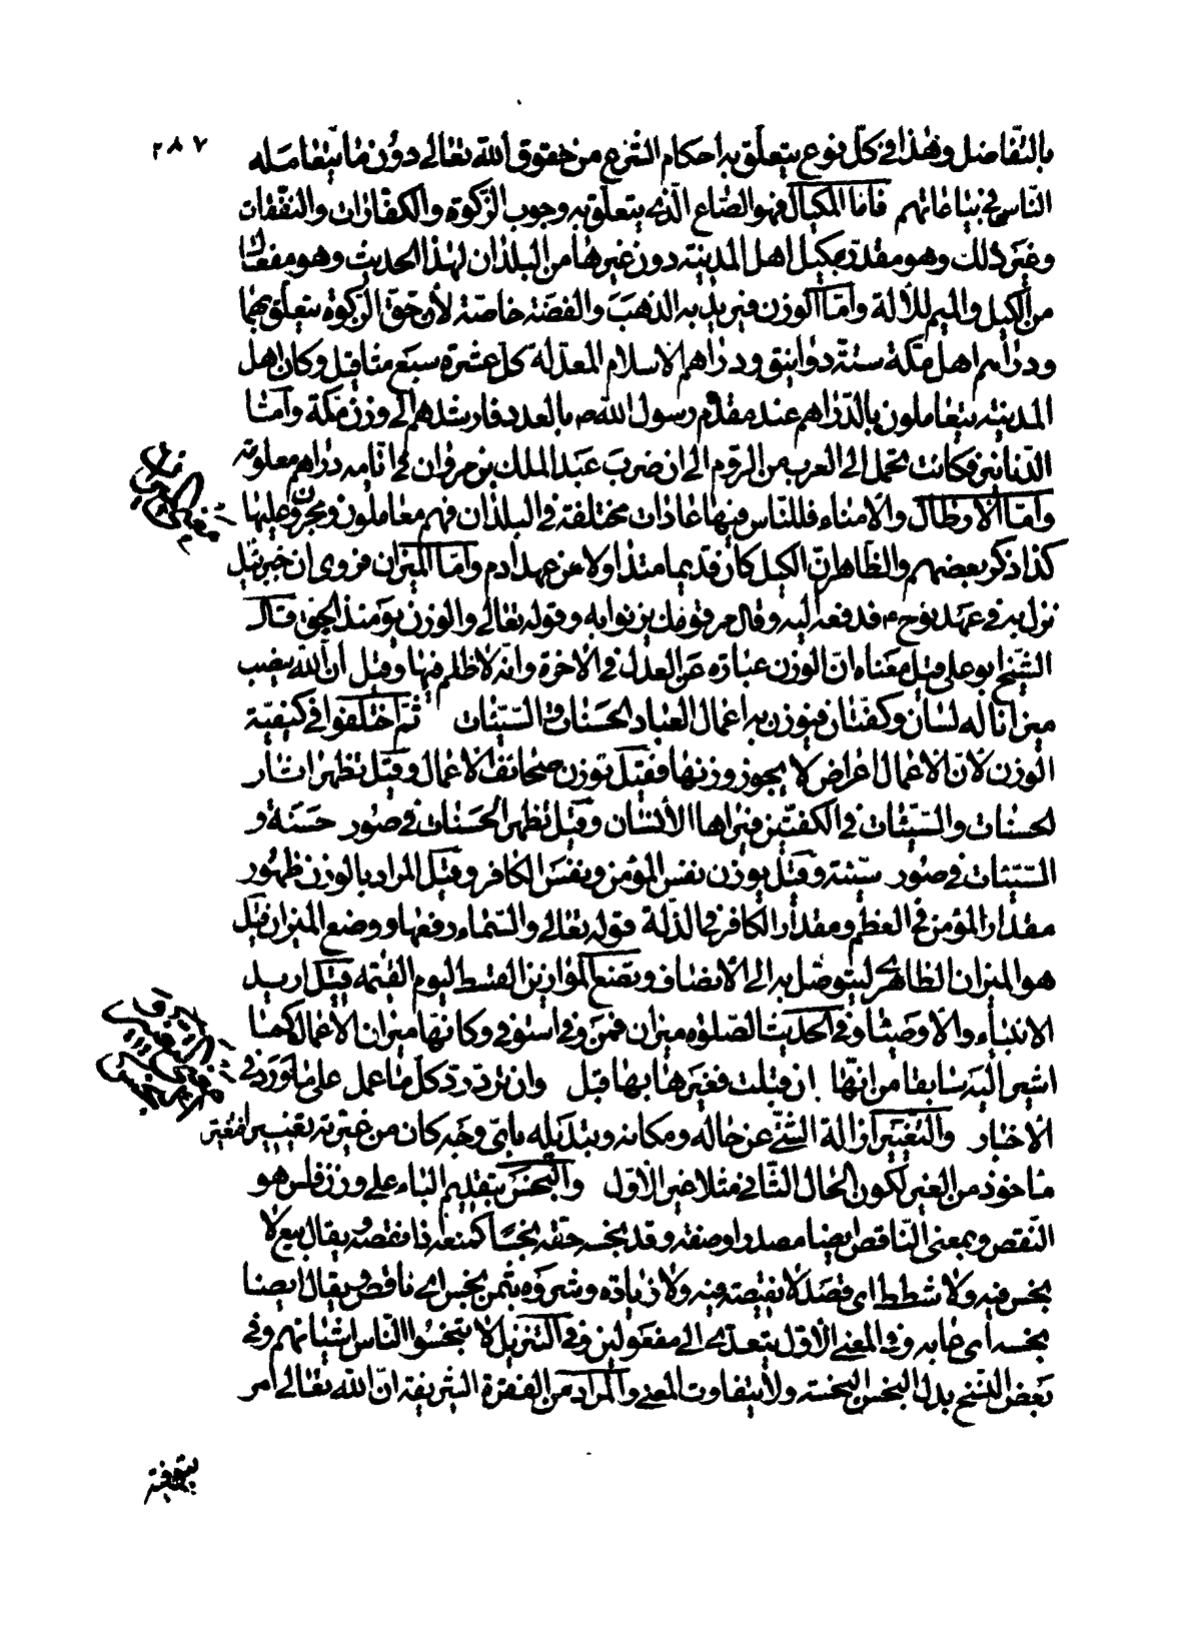 ٢٨٧
بالتّفاضل وهٰذا في كلّ نوع يتعلّق به احكام الشرع من حقوق اللّه تعٰالى دوُن مٰا يتعٰامَله
النّاس في بيٰاعٰاتهم فامّا المكيٰال فهو الصّاع الّذي يتعلّق به وجوب الزّكوة والكفّارات والنفقٰات
وغيَر ذلك وهو مقدّر بكيل اهل المدينة دون غيرهٰا من البلدان لهٰذا الحديث وهو مفعٰال
من الكيل والميم للآلة وامّا الوزن فيريد به الذهبَ والفضّة خاصّة لأن حقّ الزّكوة يتعلّق بهمٰا
ودرٰاهم اهل مكّة ستّة دوٰانيق ودرٰاهم الاسلام المعدّلة كل عشرة سبع مثٰاقيل وكان اهل
المدينة يتعٰاملون بالدّرٰاهم عند مقدم رسول اللّه ص بالعدد فارشدهم الى وزن مكّة وامّا
الدّنٰانير فكانت تحمل الى العرب من الرّوم الى ان ضربَ عبَد الملك بن مروٰان في ايّامه درٰاهم معلومة
وامّا الارطٰال والامنٰاء فللنّاس فيهٰا عٰادات مختلفة في البلدٰان فهم معٰاملون ومجرون عليهٰا
كذا ذكر بعضهم والظّاهر انّ الكيل كان قديما متداولا من عهد ادم وامّا الميزان فروى ان جبرئيل
نزل به في عهد نوح ع فدفعه اليه وقال مر قومك يزنوا به وقوله تعٰالى والوزن يومئذ الحق قال
الشّيخ ابو على قيل معنٰاه انّ الوزن عبٰارة عن العدل في الاخرة وانّه لا ظلم فيهٰا وقيل ان اللّه ينصب
ميزٰانا له لسٰان وكفّتٰان فيوزن به اعمٰال العبٰاد الحسَنٰات والسّيّئٰات ثمّ اختلفوا في كيفيّة
الوزن لانّ الاعمٰال اعرٰاض لا يجوز وزنهٰا فقيل توزن صحٰائف الاعمٰال وقيل تظهر اثٰار
لحسنٰات والسّيّئٰات في الكفّتين فيرٰاها الأنسٰان وقيل تظهر الحسَنٰات في صُور حسَنَة و
السّيّئات في صوُر سيّئة وقيل يوزن نفس المؤمن ونفسَ الكافر وقيل المراد بالوزن ظهُور
مقدٰار المؤمن في العظم ومقدٰار الكافر في الذّلة قوله تعٰالى والسّمٰاء رفعهٰا ووضع الميزٰان قيل
هو الميزان الظٰاهر ليتوصّل به الى الأنصٰاف ونضع الموٰازين القسط ليوم القيٰمة قيل اريد
الانبيٰاء والاوصيٰاء وفي الحديث الصّلوة ميزٰان فمن وفى استوفى وكانّهٰا ميزٰان الأعمٰال كمٰا
اشير اليَه سٰابقا من انّهٰا ان قبلت فغيرهٰا بها قبل وان تردّ ردّ كلّ مٰا عمل على مٰا وَرَد في
الأخبٰار والتّغيير ازٰالة الشّئ عن حٰاله ومكانه وتبديله باىّ وجه كان من غيّرته تغييرا فتغيّر
مٰاخوذ من الغير لكون الحٰال الثّاني مثلا غير الأوّل والبَخس بتقديم البٰاء على وزن فلس هو
النّقص وبمعنى النّاقص ايضا مصدرا وصفة وقد بخسه حقّه بخسًا كمنعه اذا نقصه ويقال بيع لٰا
بخس فيه ولا شطط اى فصَد لا نقيصة فيه ولا زيٰادة وشروَه بثمن بخس اى ناقص ويقال ايضا
بخسه اى عٰابه وفي المعنى الأوّل يتعدّى الى مفعَولين وفي التنزيل لا تبخسُوا النّاس اشيٰائهم وفي
بَعض النّسخ بدل البخس البخسة ولا يتفاوت المعنى والمراد من الفقرة الشريفة انّ اللّه تعٰالى امر
بتوفية